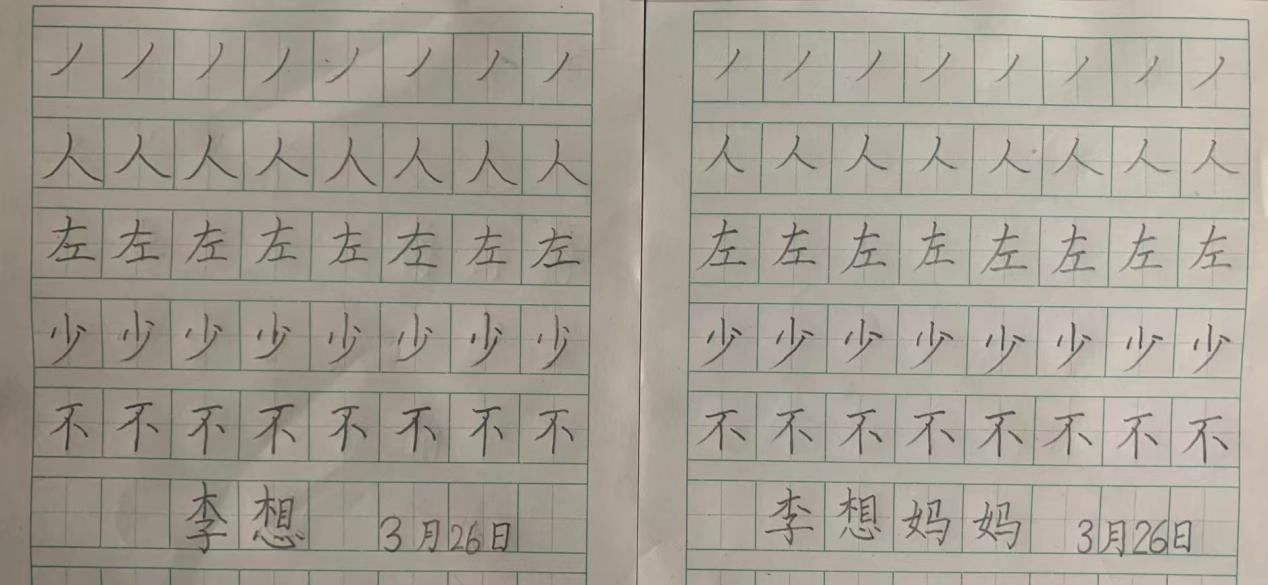 丿丿丿丿丿丿丿丿
人人人人人人人人
左左左左左左左左
少少少少少少少少
不不不不不不不不
李想 3月26日
丿丿丿丿丿丿丿丿
人人人人人人人人
左左左左左左左左
少少少少少少少少
不不不不不不不不
李想妈妈 3月26日